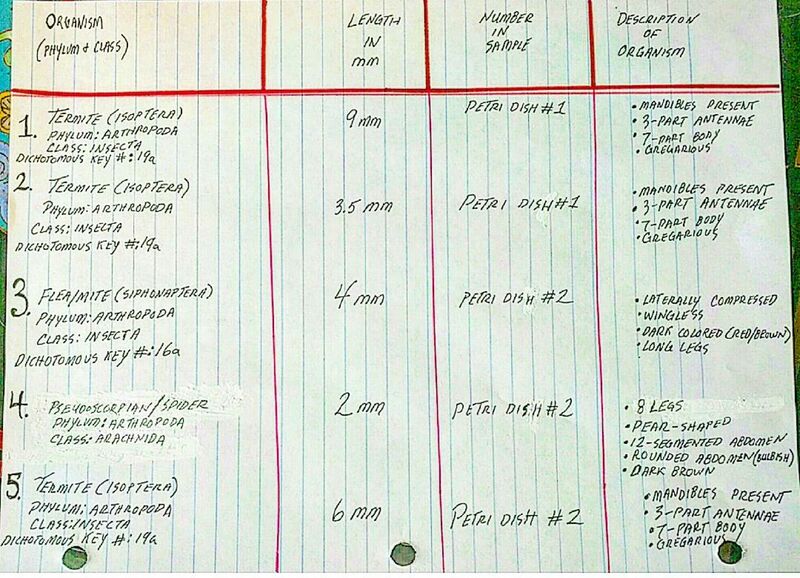 ORGANISM
(PHYLUM & CLASS)
LENGTH
IN
mm
NUMBER
IN
SAMPLE
DESCRIPTION
OF
ORGANISM
1. TERMITE (ISOPTERA)
PHYLUM: ARTHROPODA
CLASS: INSECTA
DICHOTOMOUS KEY #: 19a
9mm
PETRI DISH #1
• MANDIBLES PRESENT
• 3-PART ANTENNAE
• 7-PART BODY
• GREGARIOUS
2. TERMITE (ISOPTERA)
PHYLUM: ARTHROPODA
CLASS: INSECTA
DICHOTOMOUS KEY #: 19a
3.5 mm
PETRI DISH #1
• MANDIBLES PRESENT
• 3-PART ANTENNAE
• 7-PART BODY
• GREGARIOUS
3. FLEA/MITE (SIPHONAPTERA)
PHYLUM: ARTHROPODA
CLASS: INSECTA
DICHOTOMOUS KEY #: 16a
4 mm
PETRI DISH #2
• LATERALLY COMPRESSED
• WINGLESS
• DARK COLORED (RED/BROWN)
• LONG LEGS
4. PSEUDOSCORPIAN/SPIDER
PHYLUM: ARTHROPODA
CLASS: ARACHNIDA
2 mm
PETRI DISH #2
• 8 LEGS
• PEAR-SHAPED
• 12-SEGMENTED ABDOMEN
• ROUNDED ABDOMEN (BULBISH)
• DARK BROWN
5. TERMITE (ISOPTERA)
PHYLUM: ARTHROPODA
CLASS: INSECTA
DICHOTOMOUS KEY #: 19a
6 mm
PETRI DISH #2
• MANDIBLES PRESENT
• 3-PART ANTENNAE
• 7-PART BODY
• GREGARIOUS